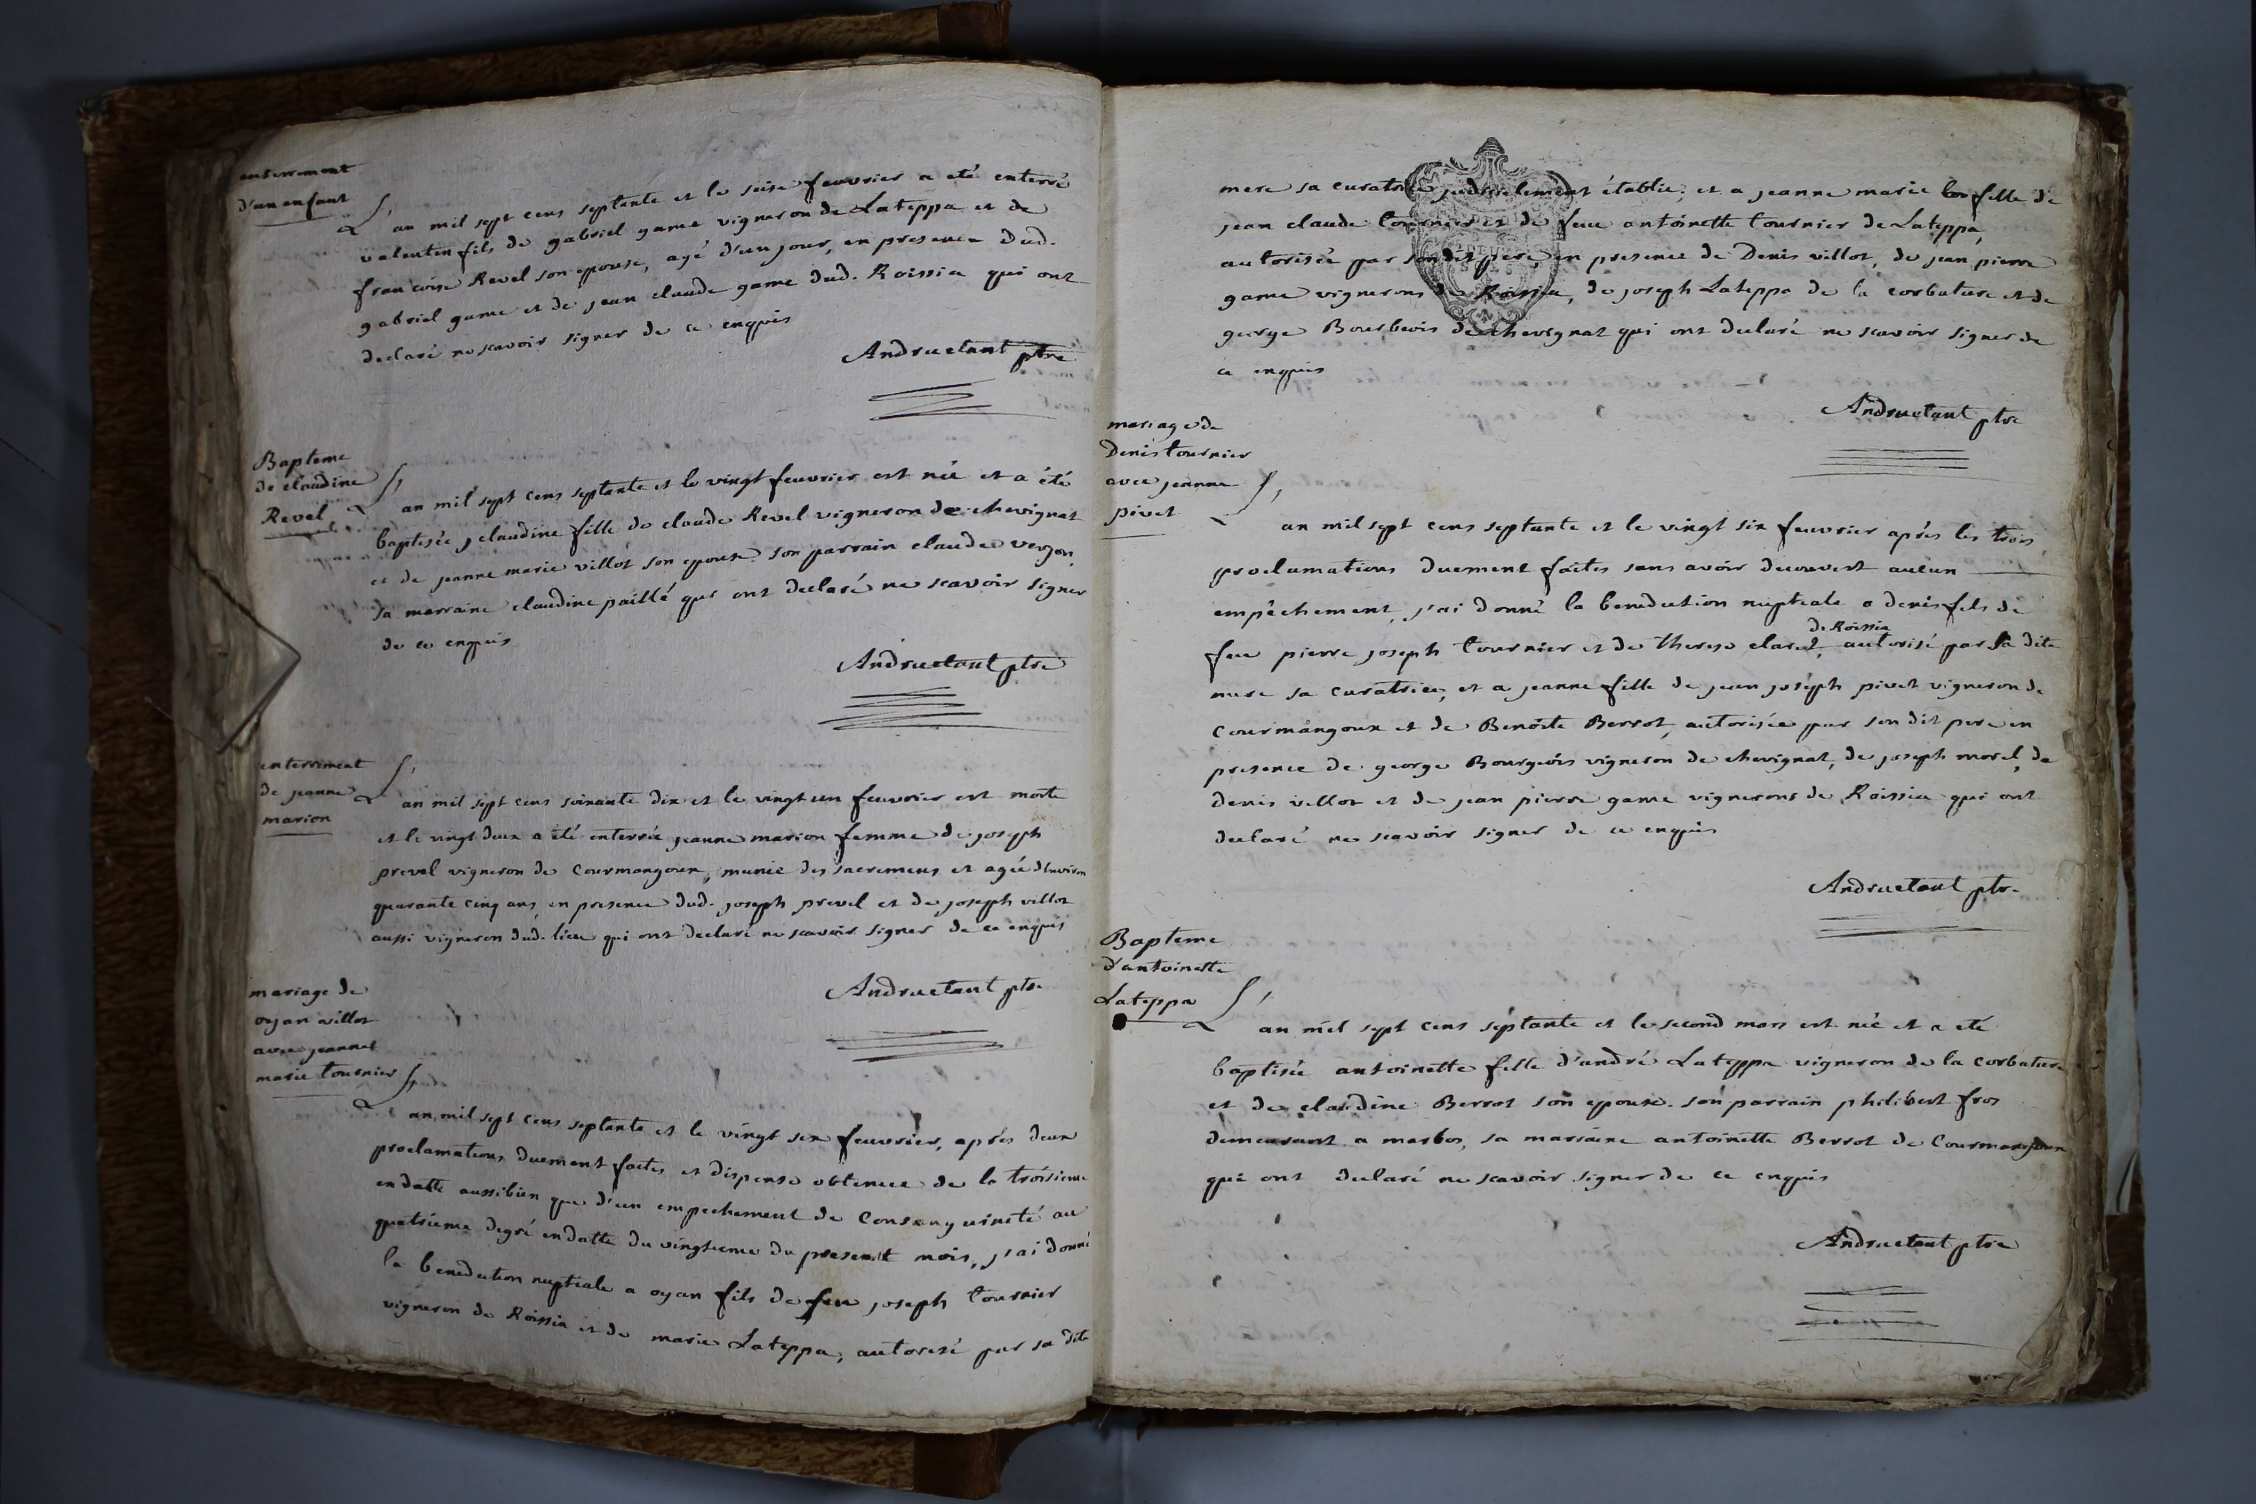 enterrement
d'un enfant
L'an mil sept cens septante et le seise feuvrier a eté enterré
valentin fils de gabriel game vigneron de Lateppa et de
francoise Revel son epouse, agé d'un jour, en presence dud.
gabriel game et de jean claude game dud. Roissia qui ont
declaré ne scavoir signer de ce enquis
Andruetant ptre
Bapteme
de claudine
Revel
L'an mil sept cens septante et le vingt feuvrier est née et a été
baptisée, claudine fille de claude Revel vigneron de chevignat
et de jeanne marie villot son epouse son parrain claude
sa marraine claudine paillé qui ont declaré ne scavoir signer
de ce enquis
Andruetant ptre
enterrement
de jeanne
marion
L'an mil sept cens soixante dix et le vingt un feuvrier est morte
et le vingt deux a été enterrée jeanne marion femme de joseph
prevel vigneron de Courmangoux, munie des sacremens et agée d'environ
quarante cinq ans, en presence dud. joseph prevel et de joseph villot
aussi vigneron dud. lieu qui ont declaré ne scavoir signer de ce enquis
Andruetant ptr.
mariage de
oyan villot
avec jeanne
marie tournier
L'an mil sept cens septante et le vingt six feuvrier, après deux
proclamations duement faites et dispense obtenue de la troisieme
en datte aussibien que d'un empechement de Consanguinité au
quatrieme degré en datte du vingtieme du present mois, j'ai donné
la benediction nuptiale a oyan fils de feu joseph tournier
vigneron de Roissia et de marie Lateppa, autorisé par sa dite
mere sa curatrice judicielement établie; et a jeanne marie fille de
jean claude tournier et de feue antoinette tournier de Lateppa,
autorisée par son dit pere, en presence de Denis villot, de jean pierre
game vignerons de Roissia, de joseph Lateppa de la corbature et de
george Bourbeois de chevignat qui ont declaré ne scavoir signer de
ce enquis
Andruetant ptre
mariage de
Denis tournier
avec jeanne
pivet
L'an mil sept cens septante et le vingt six feuvrier après les trois
proclamations duement faites sans avoir decouvert aucun
empêchement, j'ai donné la benediction nuptiale a denis fils de
de Roissia
feu pierre joseph tournier et de therese claret, autorisé par sa dite
mere sa curatrice, et a jeanne fille de jean joseph pivet vigneron de
Courmangoux et de Benoite Berrot, autorisée par son dit pere en
presence de george Bourgeois vigneron de chevignat, de joseph morel, de
denis villot et de jean pierre game vignerons de Roissia qui ont
declaré ne scavoir signer de ce enquis
Andruetant ptr.
Bapteme
d'antoinette
Lateppa
L'an mil sept cens septante et le second mars est née et a eté
baptisée antoinette fille d'andré Lateppa vigneron de la corbature
et de claudine Berrot son epouse. son parrain philibert fros
demeurant a marbos, sa marraine antoinette Berrot de Courmangoux
qui ont declaré ne scavoir signer de ce enquis
Andruetant ptre